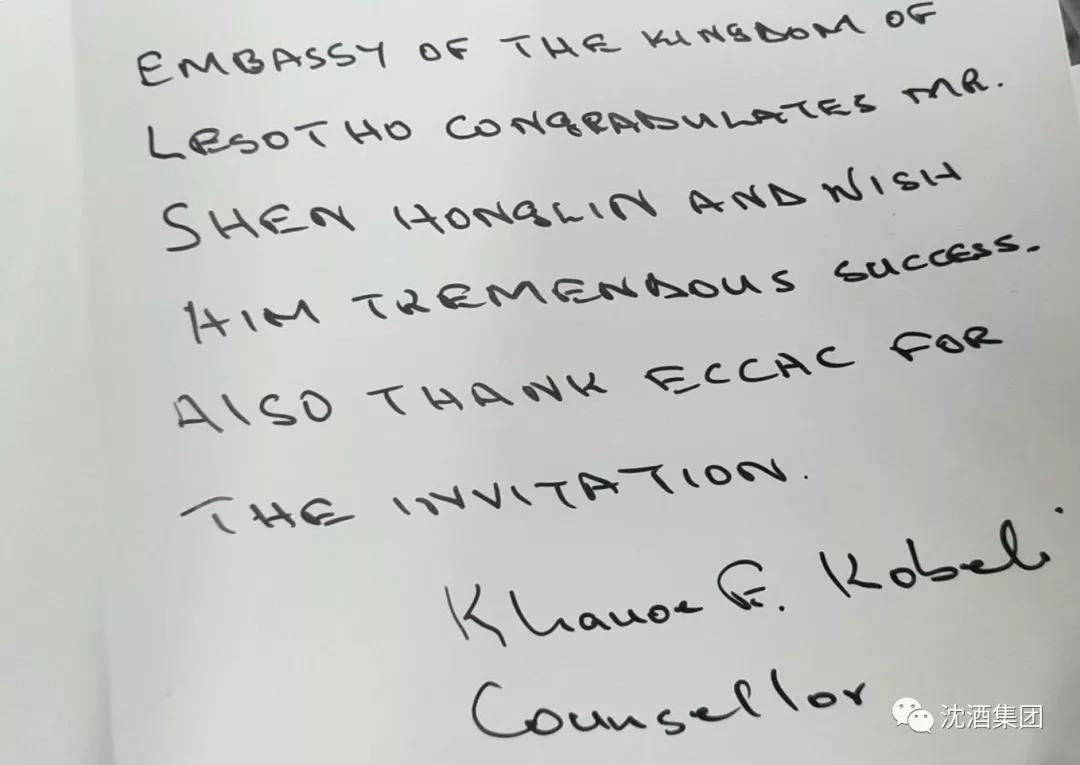 EMBASSY OF THE KINGDOM OF
LESOTHO CONGRADULATES MR.
SHEN HONGLIN AND WISH
HIM TREMENDOUS SUCCESS.
ALSO THANK ECCAC FOR
THE INVITATION.
Khauoe F. Kobeli
Counsellor
沈酒集团